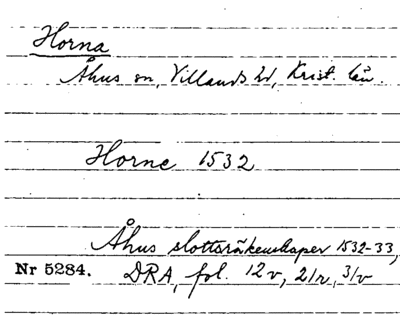 Horna
Åhus sn, Villands hd, Krist. län.
Horne 1532
Åhus slottsräkenskaper 1532-33,
Nr 5284. DRA, fol. 12v, 21r, 31v